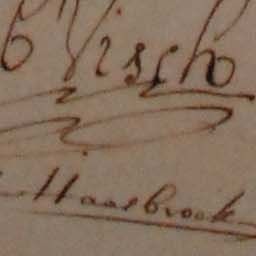 b Visch
Haasbroek